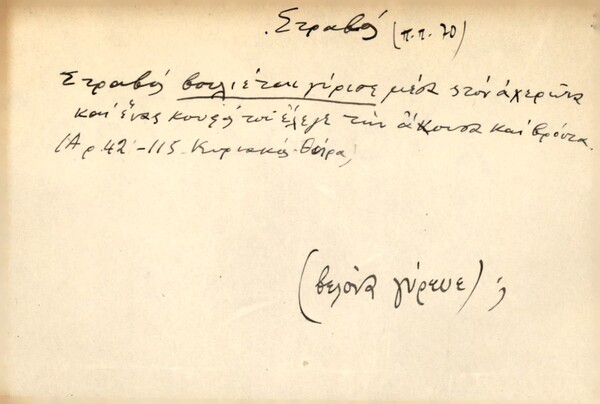 Στραβός (π.π. 70)
Στραβός βουλιέται γύρισε μέσα στον αχερώνα
και ένας κουφός του έλεγε την άκουσα και βρόντα.
(Αρ. 42 - 115 Κυριακός Θήρα)
(βελόνα γύρευε) ;